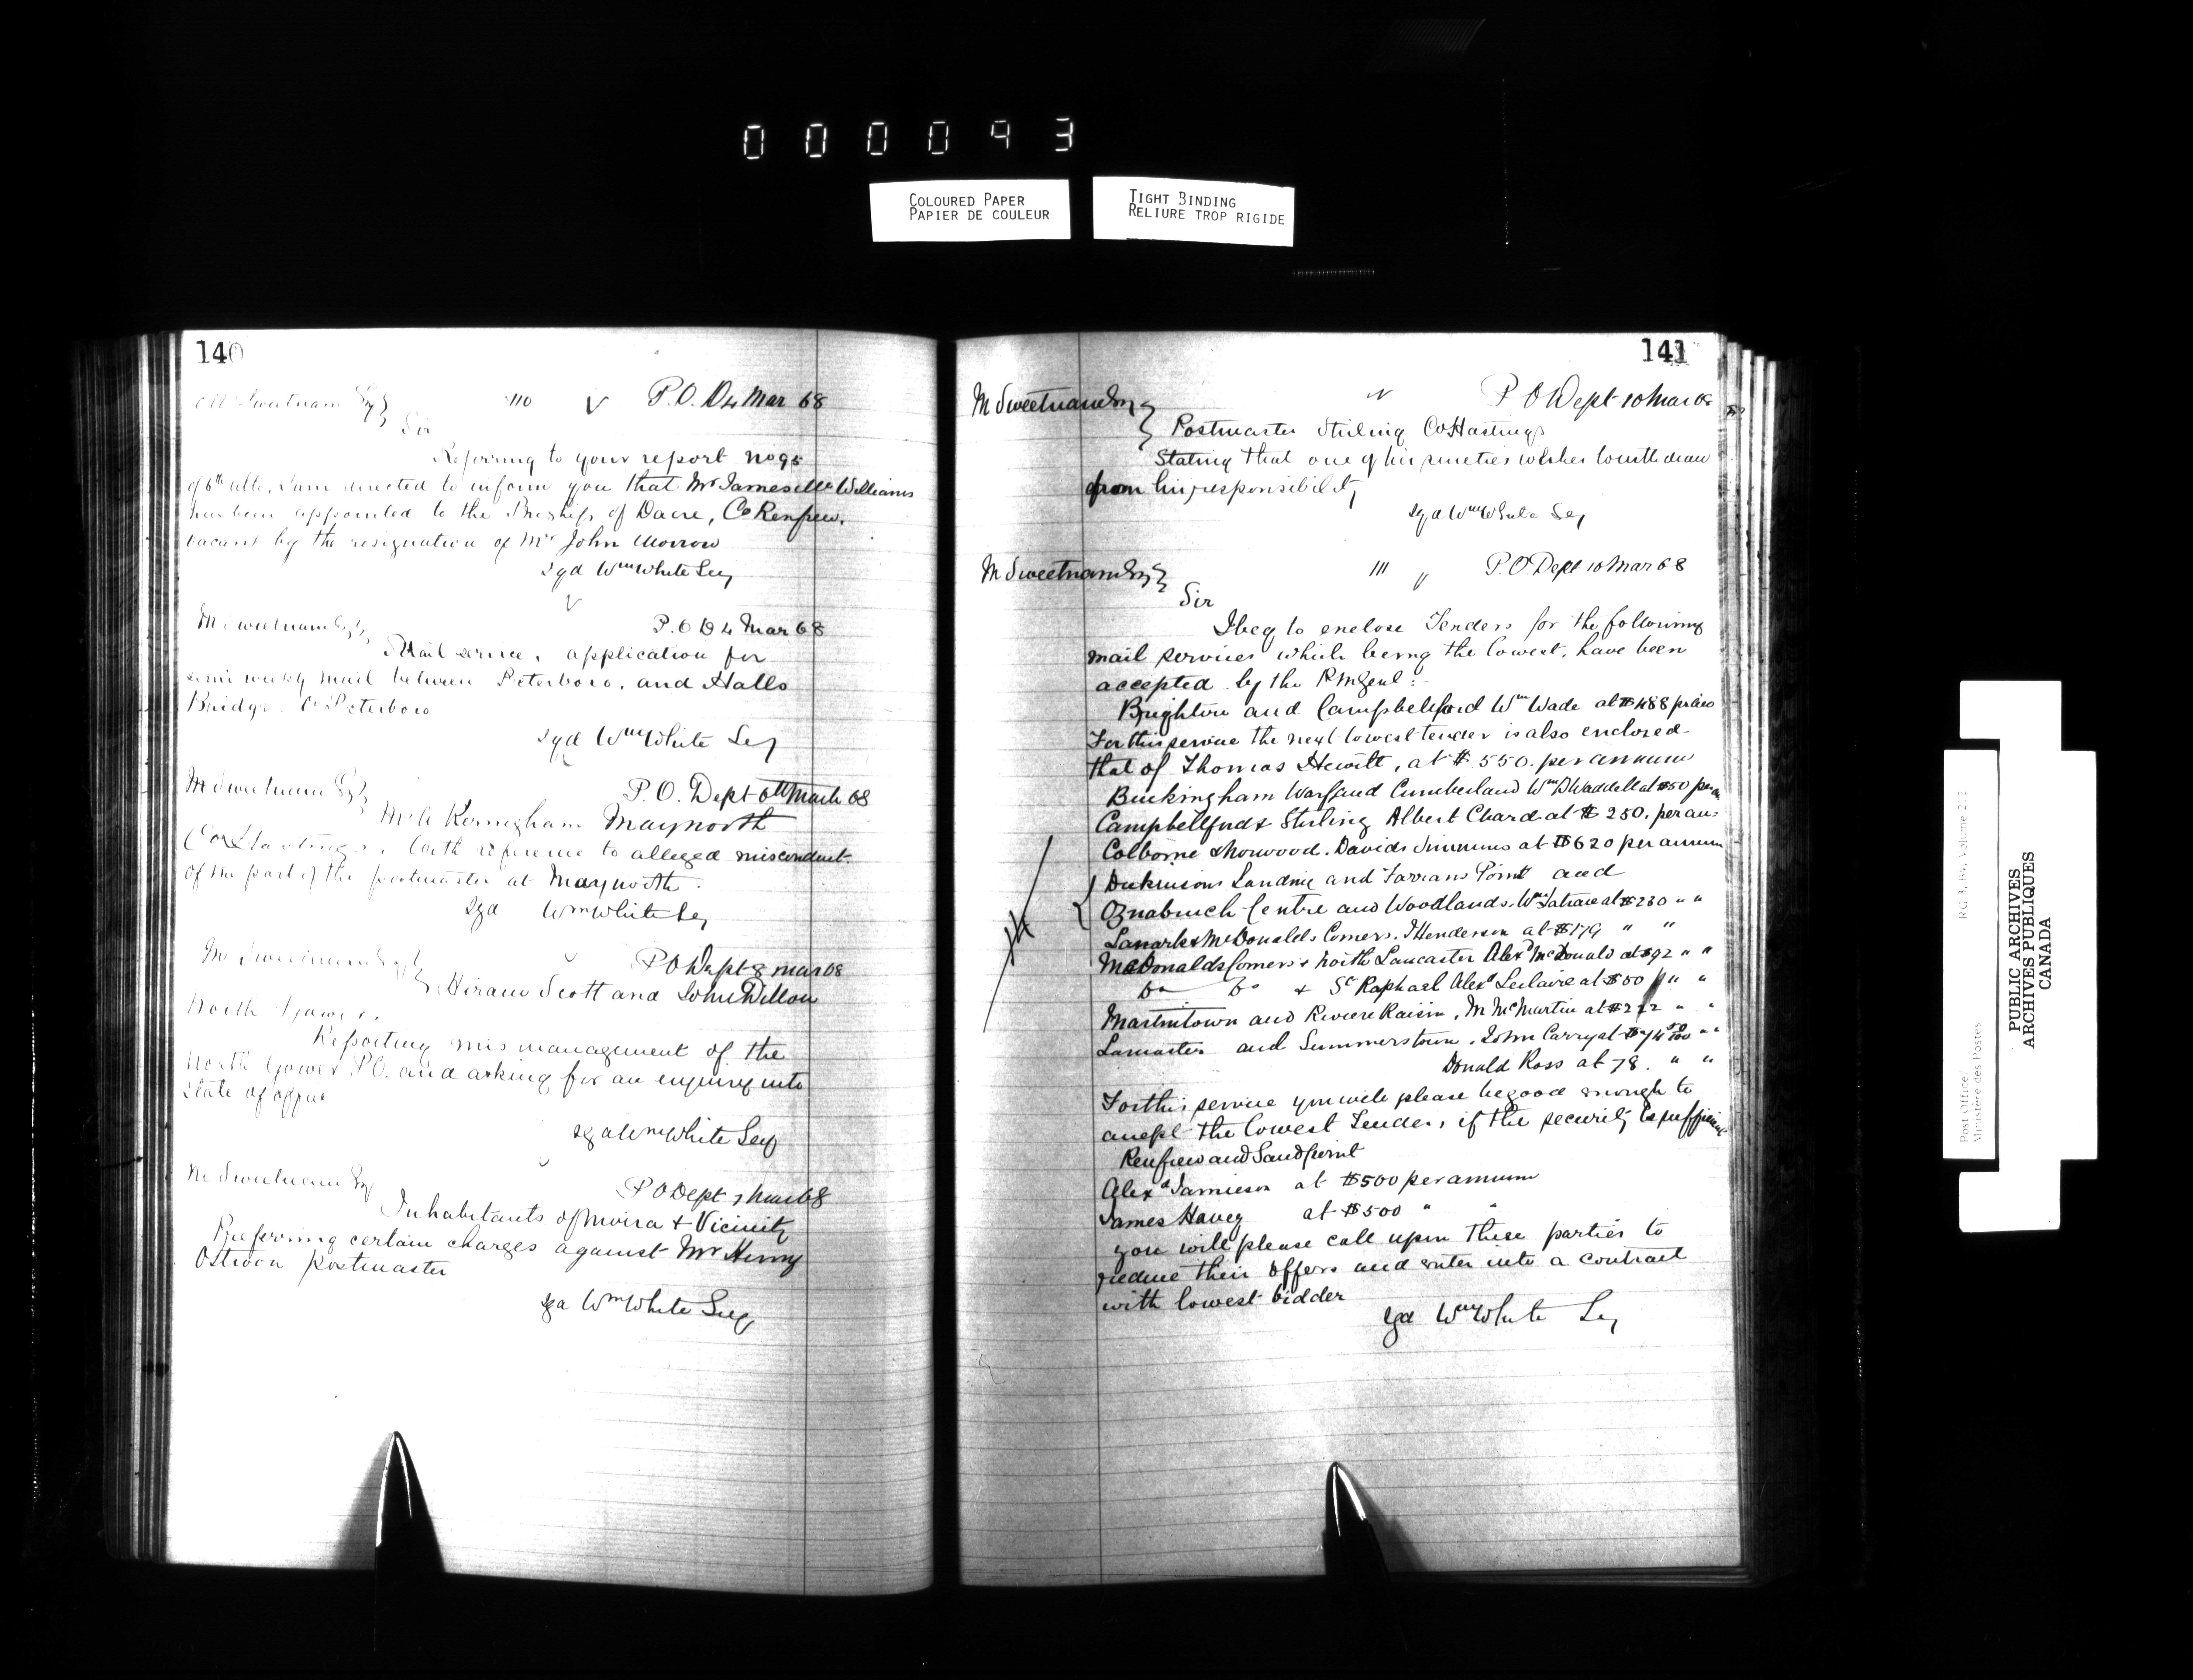 000093
COLOURED PAPER
PAPIER DE COULEUR
TIGHT BINDING
RELIURE TROP RIGIDE
140
M Sweetnam Esq 110 P.O.D 4 Mar 68
Sir
Referring to your report No 95
of 6th ulto, I am directed to inform you that Mr James Williams
has been appointed to the of Dacre, Co Renfrew.
vacant by the resignation of Mr John Morrow
sgd Wm White Secy
M Sweetnam Esq P.O D 4 Mar 68
Mail service, application for
semi weekly mail between Peterboro, and Halls
Bridge Co Peterboro
sgd Wm White Secy
M Sweetnam Esq P.O. Dept 6th March 68
Mr Kernigham Maynooth
Co Hastings, with reference to alleged misconduct
of the part of the postmaster at Maynooth.
sgd Wm White Secy
M Sweetnam Esq P O Dept 8 Mar 68
Hiram Scott and John Dillon
North Gower.
Reporting mis management of the
North Gower P.O. and asking for an enquiry into
State of office
sgd Wm White Secy
M Sweetnam Esq P O Dept 7 Mar 68
Inhabitants of Moira & Vicinity
Preferring certain charges against Mr Henry
Ostrom postmaster
sgd Wm White Secy
141
M Sweetnam Esq P O Dept 10 Mar 68
Postmaster Stirling Co Hastings
Stating that one of his sureties wishes to withdraw
from his responsibility
sgd Wm White Secy
M Sweetnam Esq 111 P.O. Dept 10 Mar 68
Sir
I beg to enclose Tenders for the following
mail services which being the lowest, have been
accepted by the P M Genl:
Brighton and Campbellford Wm Wade at $488 per
For this service the next lowest tender is also enclosed
that of Thomas Hewitt, at $550. per annum
Buckingham Warf and Cumberland Wm D Waddell at $50 per an
Campbellford & Stirling Albert Chard at $250. per an:
Colborne & Norwood. David Simmons at $620 per annum
Dickinsons Landing and Farrans Point and
Oznabruck Centre and Woodlands, Wm at $230 " "
Lanark & McDonalds Corners. J Henderson at $179 " "
McDonalds Corners & North Lancaster Alexr McDonald at $92 " "
Do Do & St Raphael Alexr Leclaire at $50 " "
Martintown and Riviere Raisin, M McMartin at " "
Lancaster and Summerstown, John Carry at $74 50/100 " "
Donald Ross at 78. " "
For this service you will please be good enough to
accept the lowest Tender, if the security is sufficient
Renfrew and Sandpoint
Alexr Jamieson at $500 per annum
James Havey at $500 " "
you will please call upon these parties to
reduce their offers and enter into a contract
with lowest bidder
sgd Wm White Secy
Post Office
Ministère des Postes
RG 3, A4, Volume 212
PUBLIC ARCHIVES
ARCHIVES PUBLIQUES
CANADA